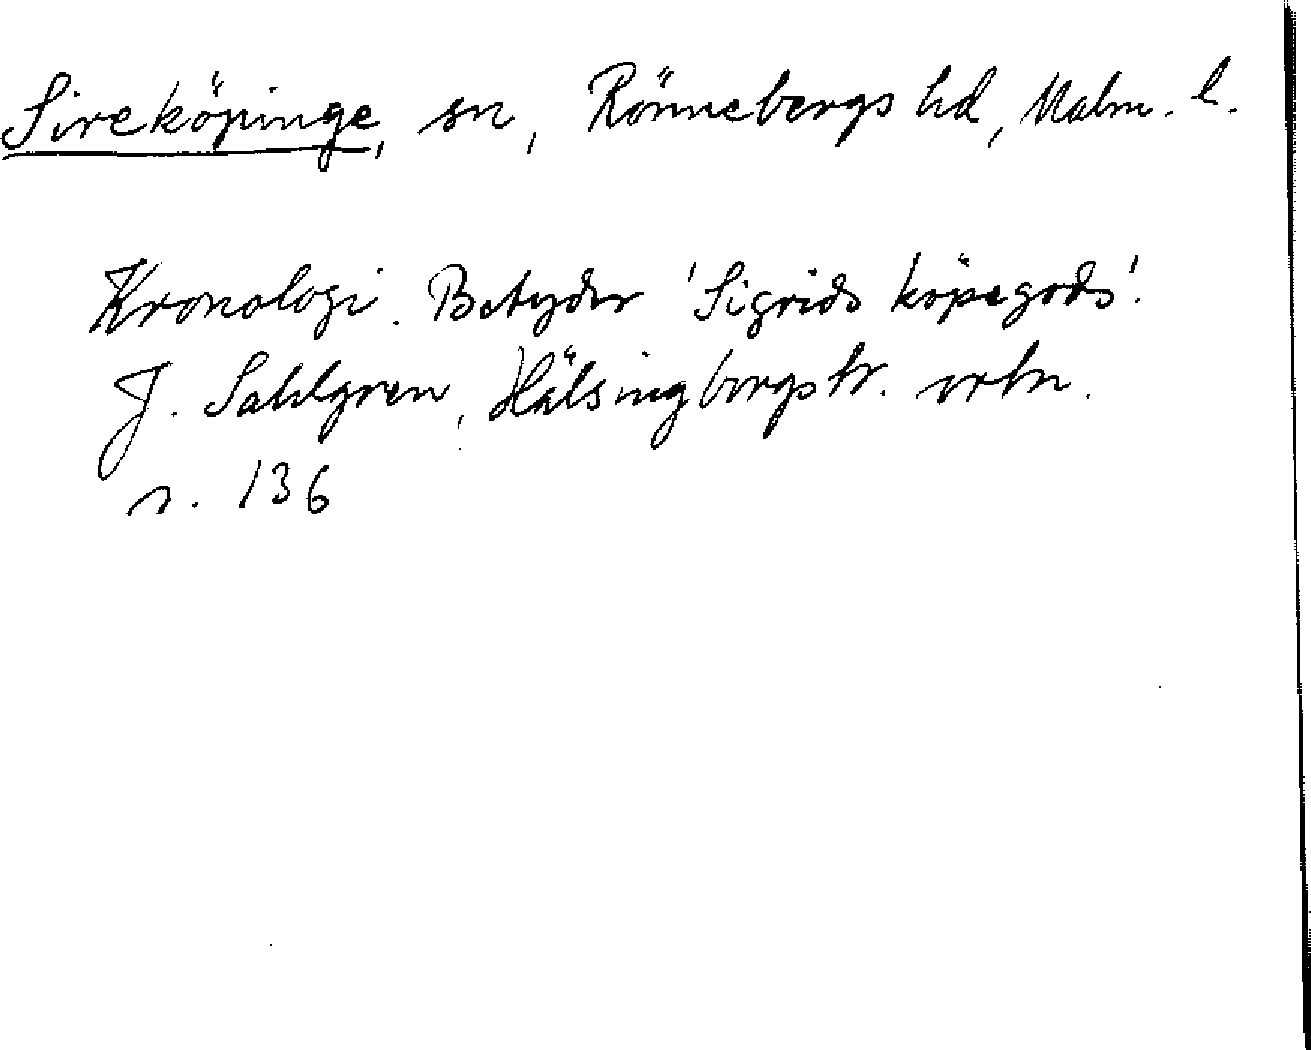 Sireköpinge, sn, Rönnebergs hd, Malm. l.
Kronologi. Betyder 'Sigrids köpegods'.
J. Sahlgren, Hälsingborgstr. ortn.
s. 136